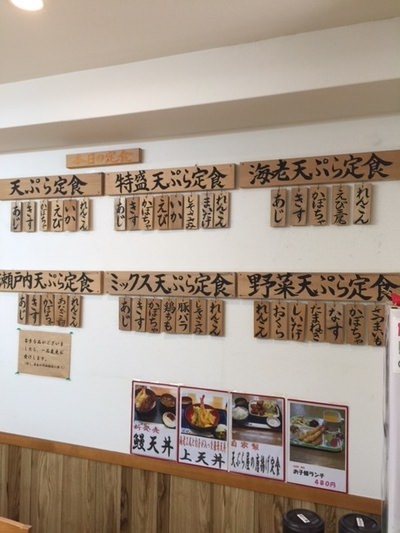 本日の定食
天ぷら定食
れんこん
いか
えび
かぼちゃ
きす
あじ
特盛天ぷら定食
しゃさみ
まいたけ
いか
えび
かぼちゃ
きす
あじ
海老天ぷら定食
れんこん
えび
かぼちゃ
きす
あじ
瀬戸内天ぷら定食
れんこん
かぼちゃ
きす
あじ
ミックス天ぷら定食
れんこん
豚バラ
鶏もも
かぼちゃ
きす
あじ
野菜天ぷら定食
さつまいも
かぼちゃ
なす
たまねぎ
しいたけ
おくら
れんこん
新発売
鰻天丼
上天丼
自家製
天ぷら屋の唐揚げ定食
お子様ランチ
680円